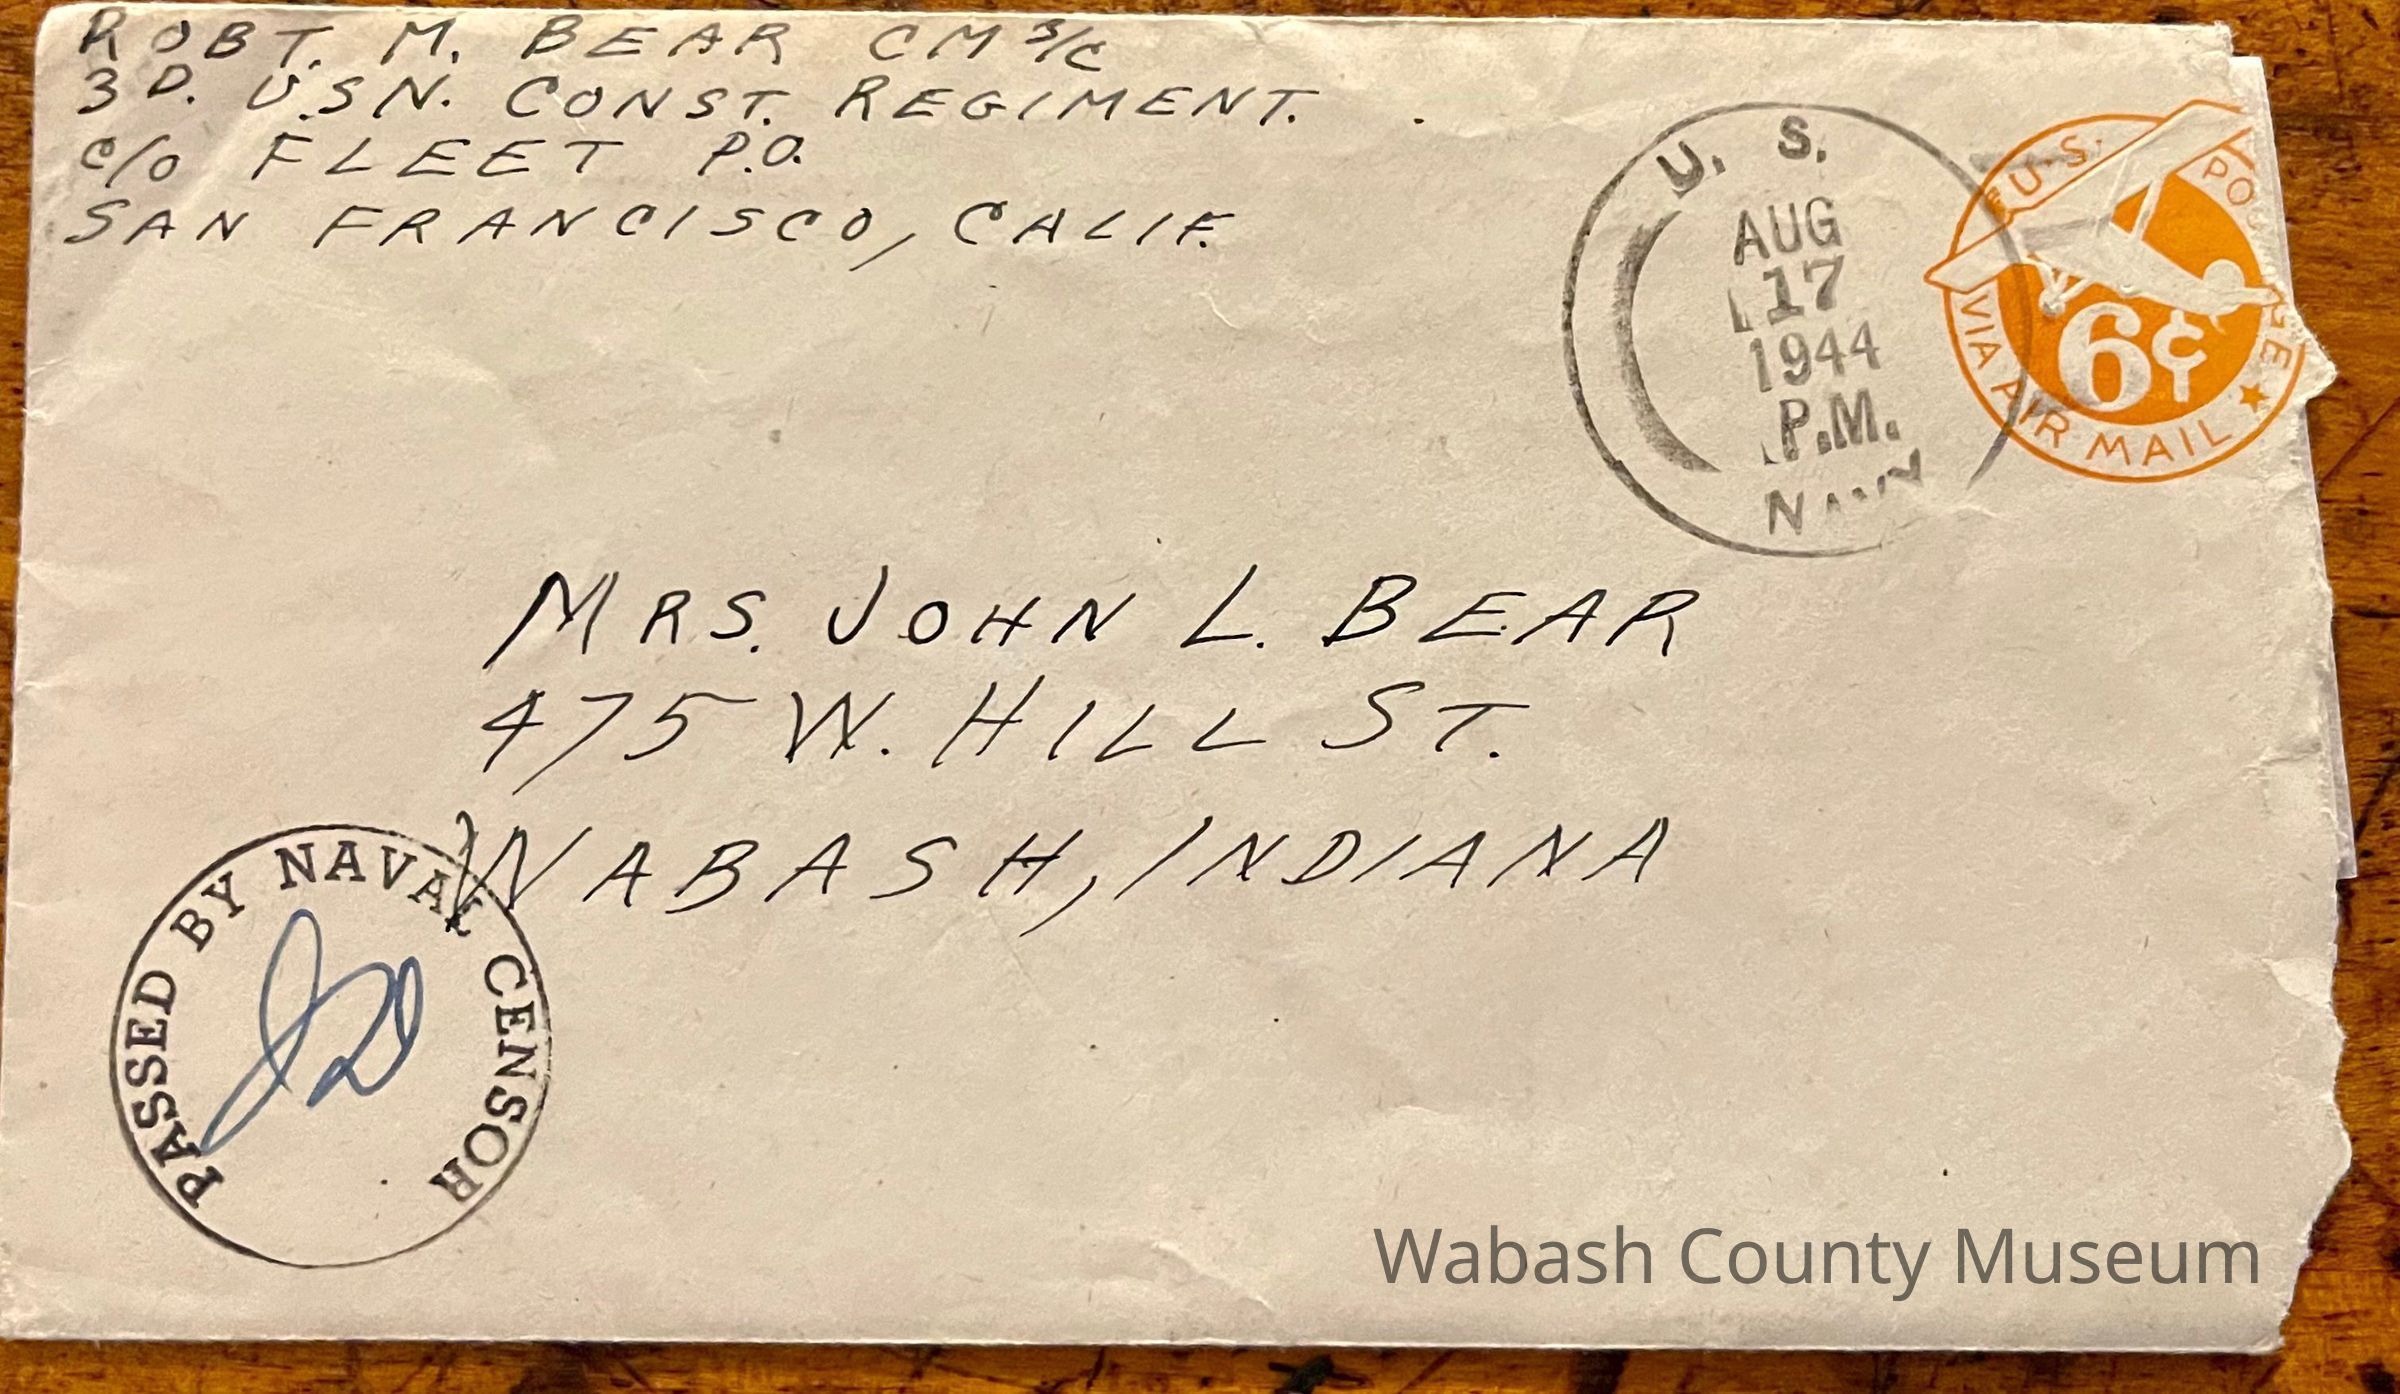 ROBT. M. BEAR CM 3/C
3D. U.S.N. CONST. REGIMENT.
c/o FLEET P.O.
SAN FRANCISCO, CALIF.
U. S.
AUG
17
1944
P.M.
NAVY
U.S. POSTAGE
VIA AIR MAIL
6¢
MRS. JOHN L. BEAR
475 W. HILL ST.
WABASH, INDIANA
PASSED BY NAVAL CENSOR
Wabash County Museum